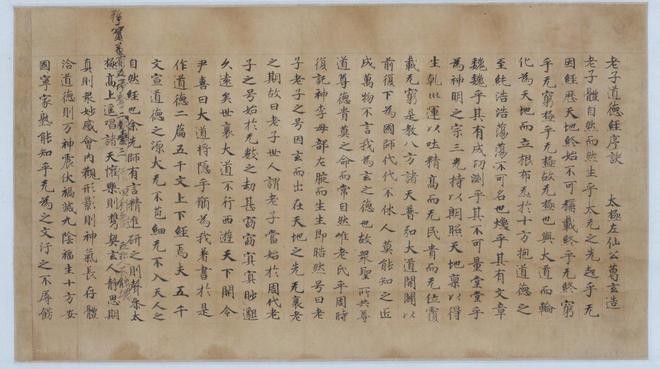 老子道德經序訣　太極左仙公葛玄造
老子體自然而然生乎太无之先起乎无
因經歷天地終始不可稱載終乎无終窮
乎无窮極乎无極故无極也與大道而輪
化為天地而立根布炁於十方抱道德之
至純浩浩蕩蕩不可名也煥乎其有文章
巍巍乎其有成功測乎其不可量堂堂乎
為神明之宗三光持以朗照天地稟以得
生乾坤運以吐精高而无民貴而无位覆
載无窮是教八方諸天普弘大道開闢以
前復下為國師代代不休人莫能知之近
成萬物不言我為玄之德也故眾聖所共尊
道尊德貴莫之命而常自然唯老氏乎周時
復託神李母部左腋而生生即皓然號曰老
子老子之号因玄而出在天地之先无衰老
之期故曰老子世人謂老子當始於周代老
子之号始於无數之劫甚窈窈冥冥眇邈
久遠矣世衰大道不行西遊天下關令
尹喜曰大道將隱乎願為我著書於是
作道德二篇五千文上下經焉夫五千
文宣道德之源大无不苞細无不入天人之
自然經也余先師有言精進研之則聲參太
極高上遥唱諸天懽樂則攜契玄人靜思期
真則眾妙感會內觀形影則神氣長存體
洽道德則万神震伏禍滅九陰福生十方安
國寧家孰能知乎无為之文汙之不辱飾